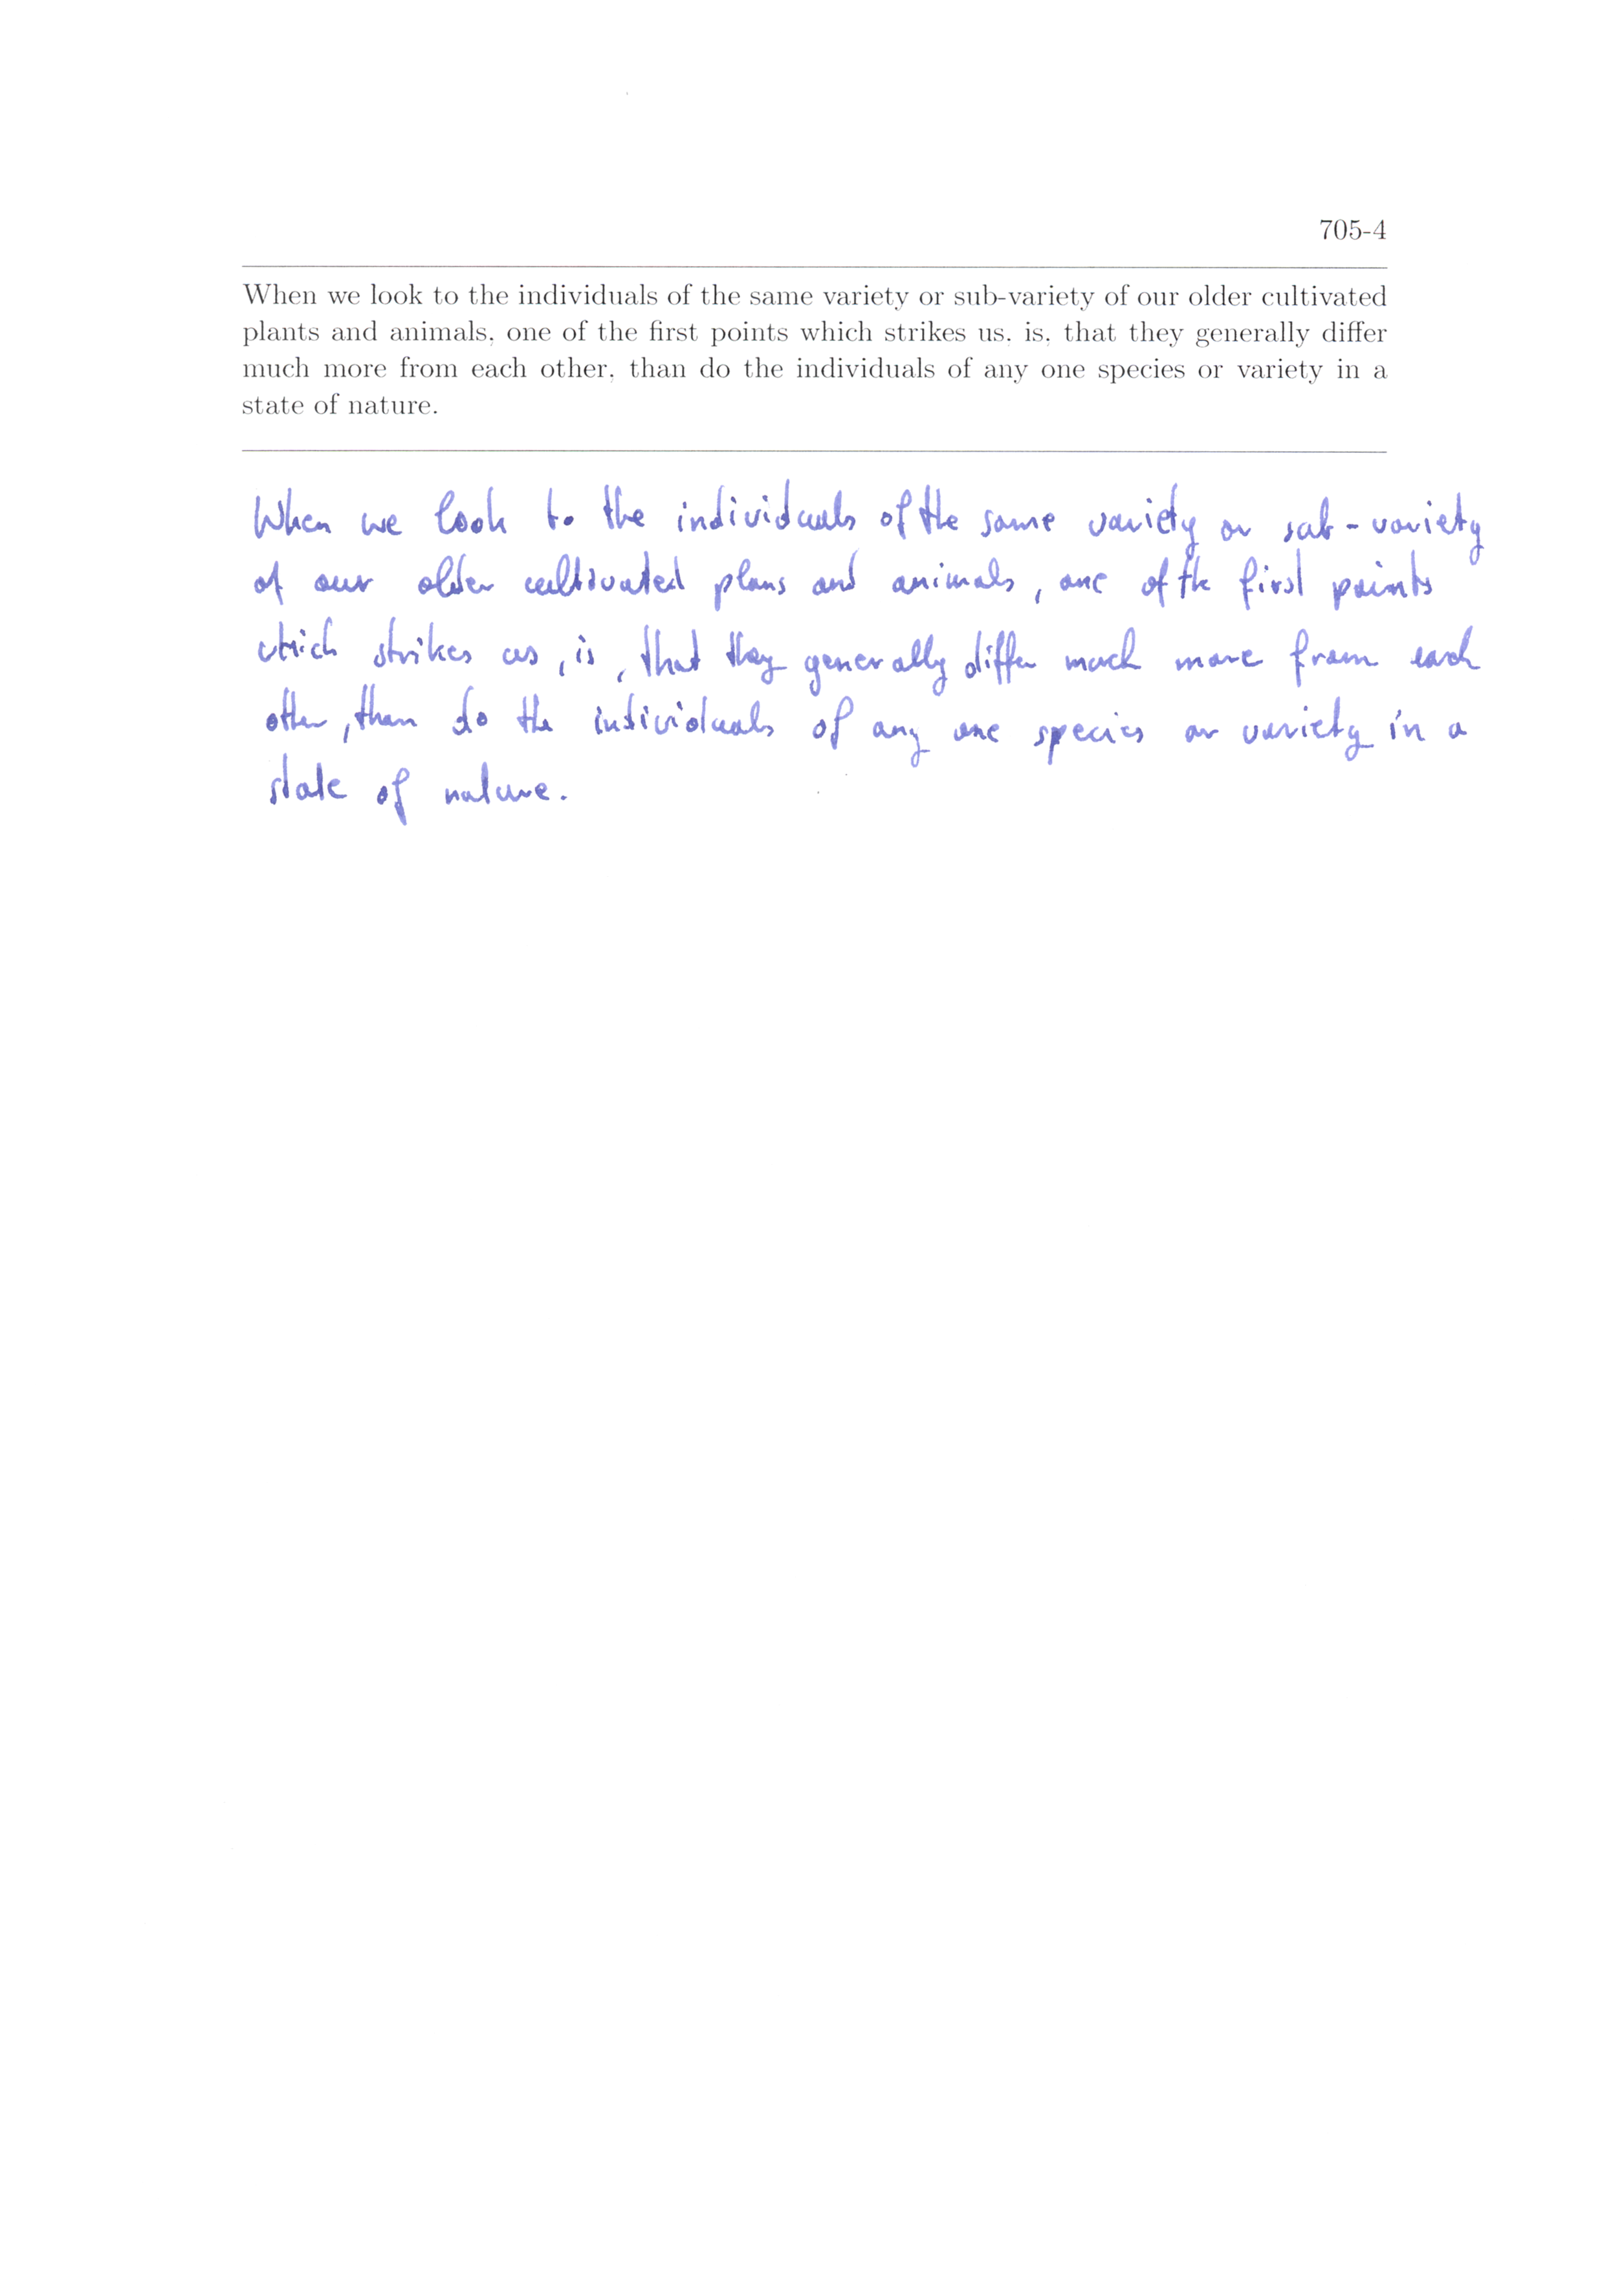 705-4
When we look to the individuals of the same variety or sub-variety of our older cultivated
plants and animals, one of the first points which strikes us, is, that they generally differ
much more from each other, than do the individuals of any one species or variety in a
state of nature.
When we look to the individuals of the same variety or sub-variety
of our older cultivated plans and animals, one of the first points
which strikes us, is, that they generally differ much more from each
other, than do the individuals of any one species or variety in a
state of nature.